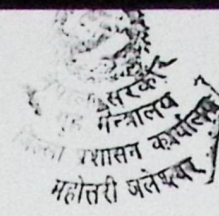 सरकार
गृह मन्त्रालय
जिल्ला प्रशासन कार्यालय
महोत्तरी जलेश्वर